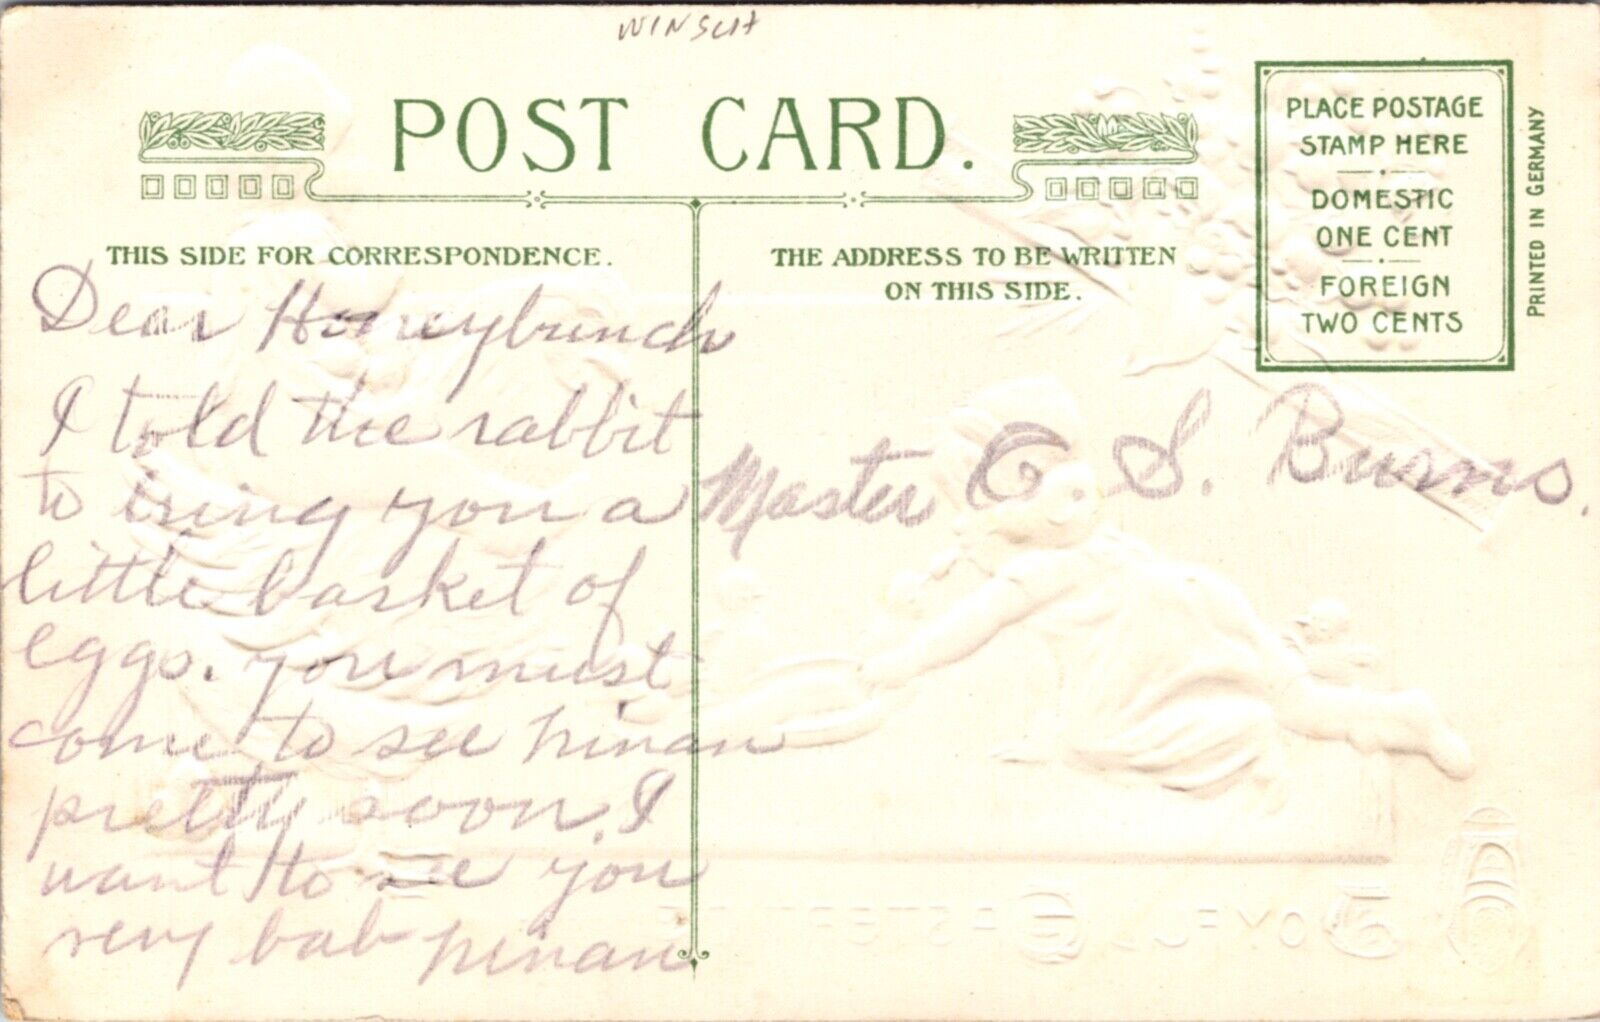 WINSCH
POST CARD.
PLACE POSTAGE
STAMP HERE
DOMESTIC
ONE CENT
FOREIGN
TWO CENTS
PRINTED IN GERMANY
THIS SIDE FOR CORRESPONDENCE.
Dear Honeybunch
I told the rabbit
to bring you a
little basket of
eggs. you must
come to see ninan
pretty soon. I
want to see you
very bab ninan
THE ADDRESS TO BE WRITTEN
ON THIS SIDE.
Master C. S. Burns.